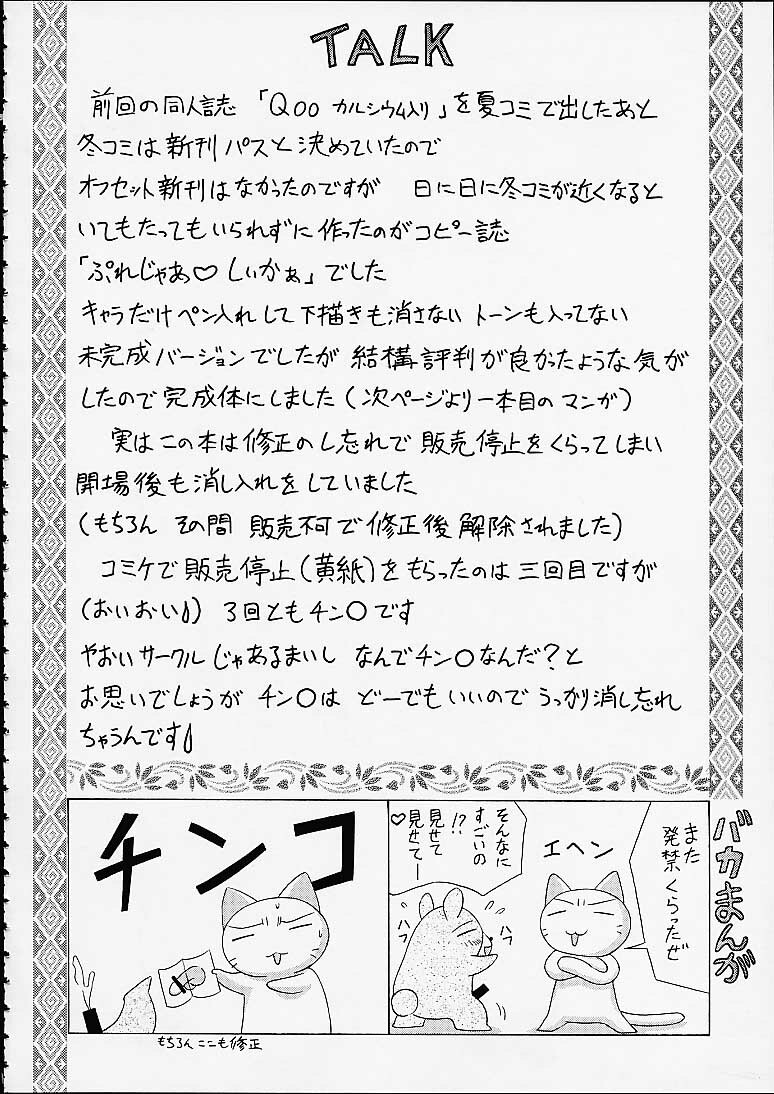 TALK
前回の同人誌 「Qoo カルシウム入り」を夏コミで出したあと
冬コミは新刊パスと決めていたので
オフセット新刊はなかったのですが 日に日に冬コミが近くなると
いてもたってもいられずに作ったのがコピー誌
「ぷれじゃあ♡しいかぁ」でした
キャラだけペン入れして下描きも消さない トーンも入ってない
未完成バージョンでしたが 結構評判が良かったような気が
したので完成体にしました(次ページより一本目のマンガ)
実はこの本は修正のし忘れで 販売停止をくらってしまい
開場後も消し入れをしていました
(もちろん その間 販売不可で修正後解除されました)
コミケで販売停止(黄紙)をもらったのは三回目ですが
(おいおい) 3回ともチン○です
やおいサークルじゃあるまいし なんでチン○なんだ?と
お思いでしょうが チン○は どーでもいいので うっかり消し忘れ
ちゃうんです
バカまんが
また
発禁くらったぜ
エヘン
そんなに
すごいの
!?
見せて
見せてー
♡
ハフ
ハフ
チンコ
もちろんここも修正